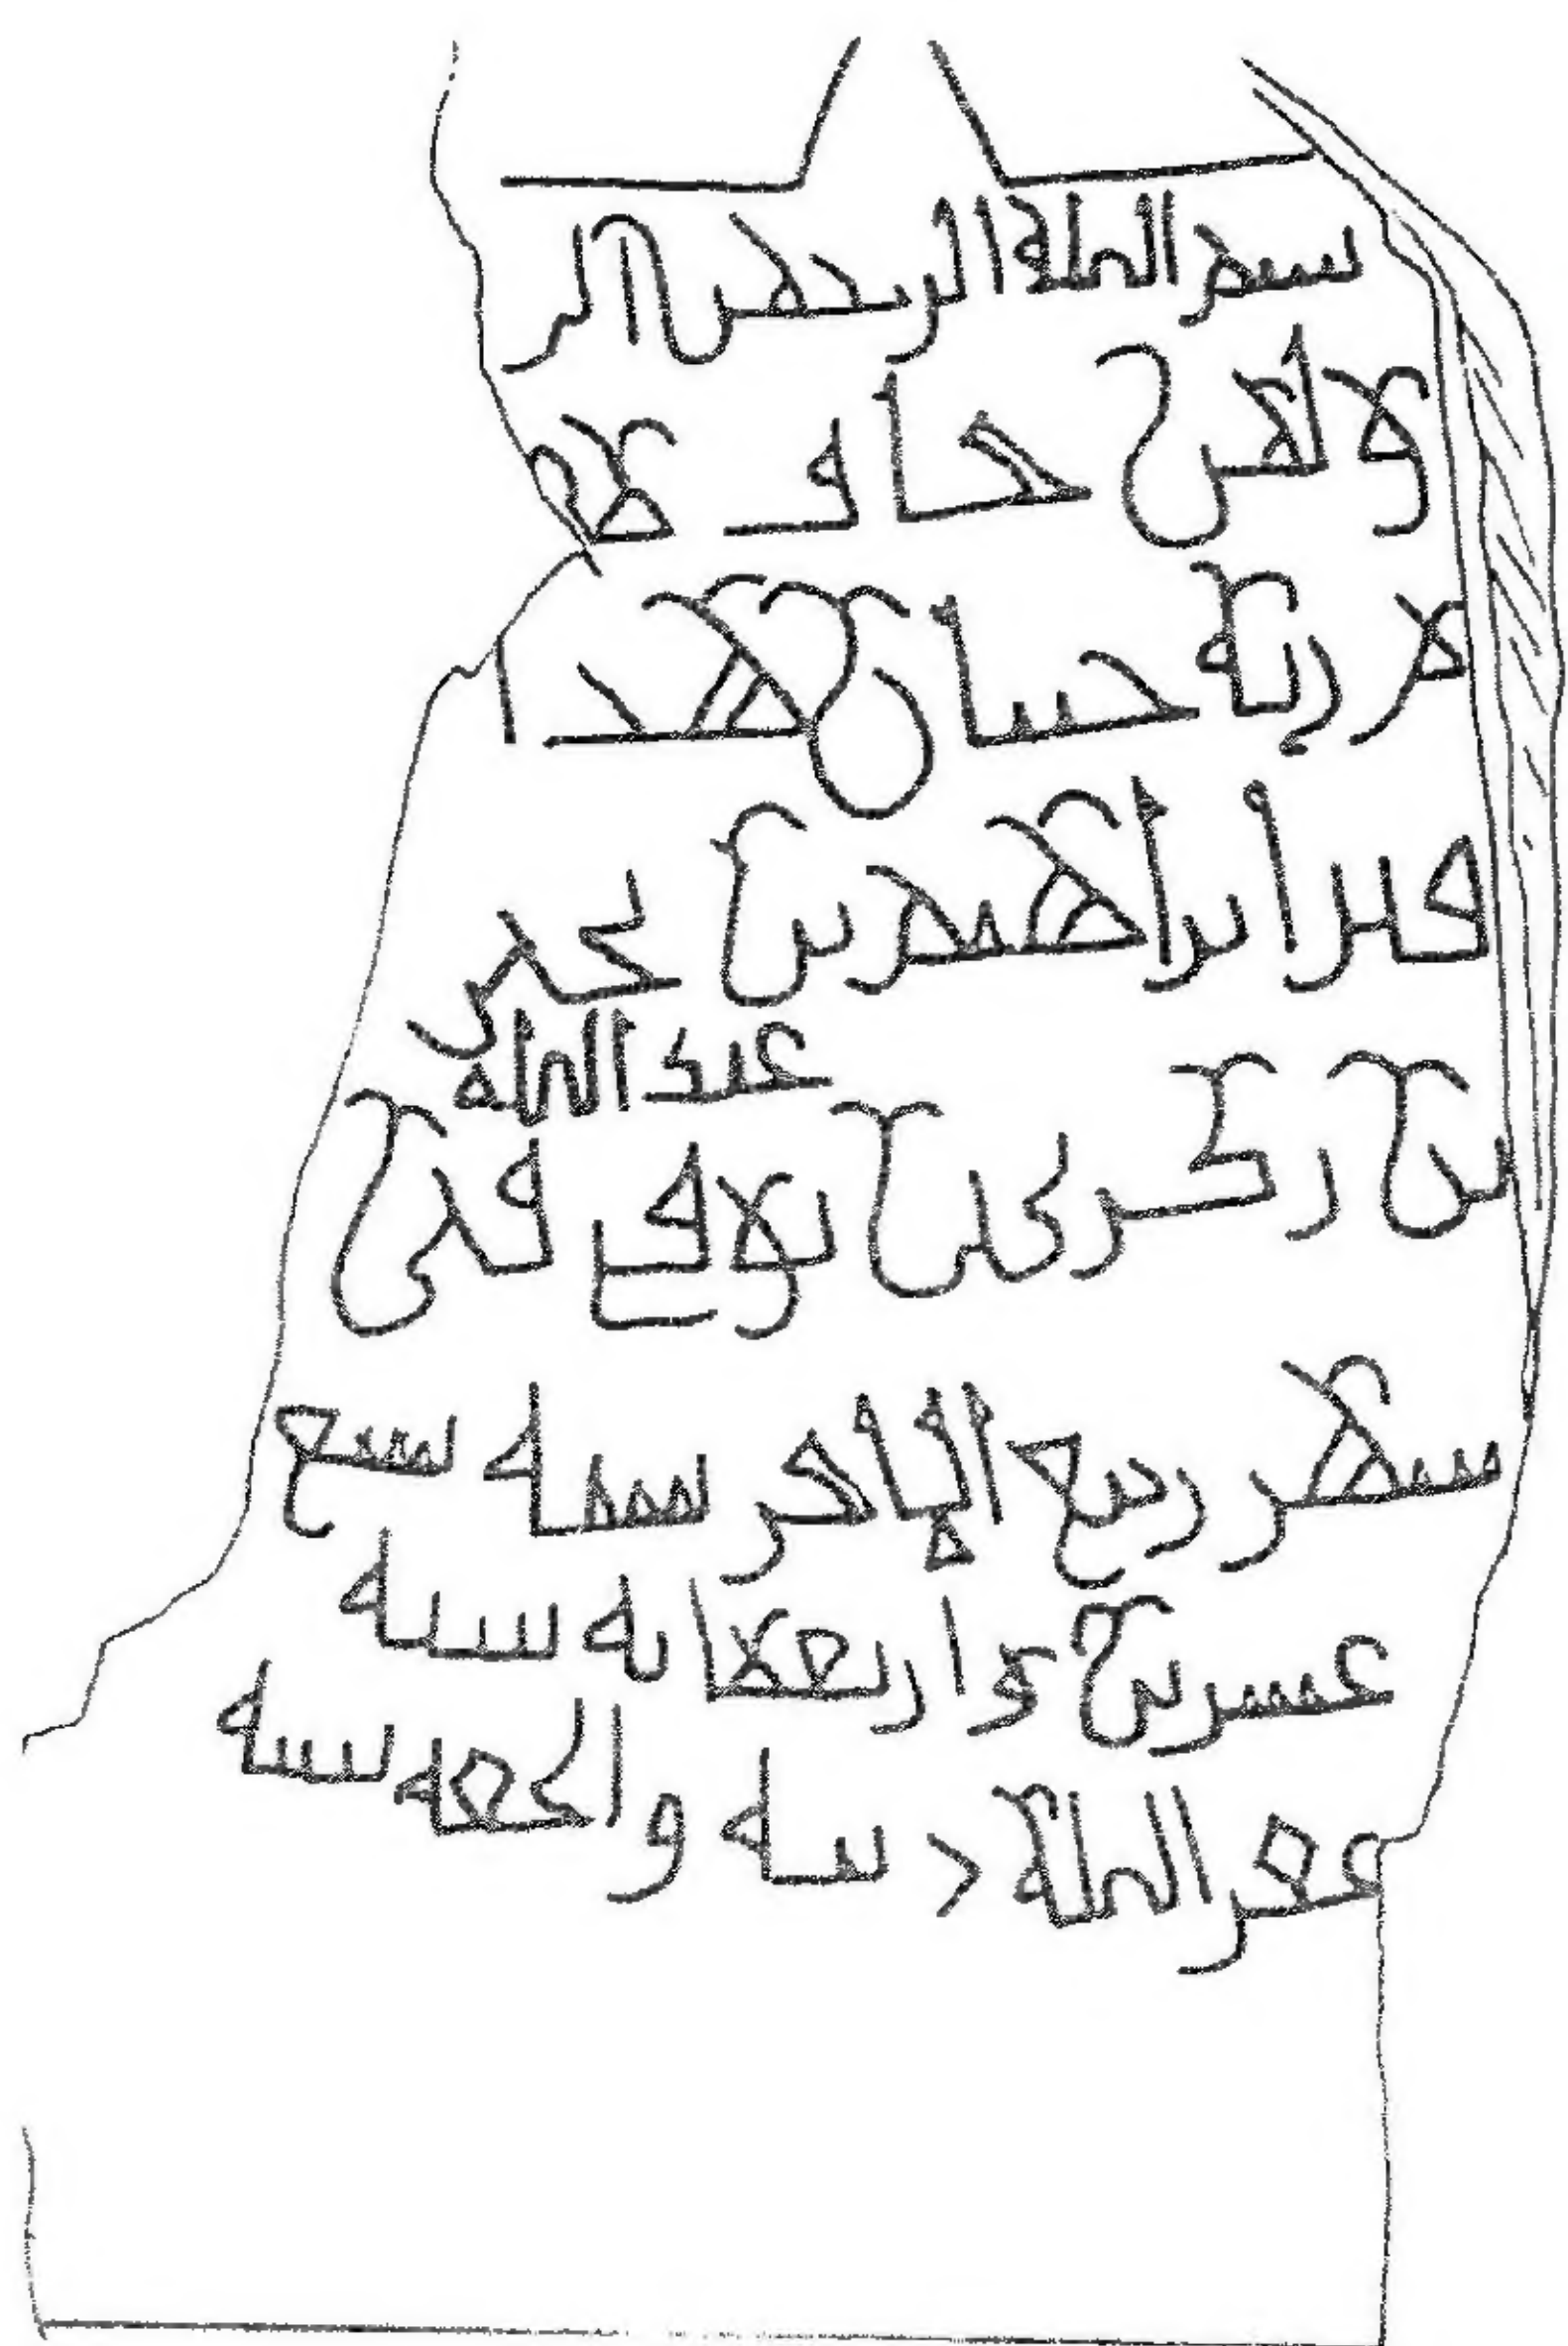 بسم الله الرحمن الر
ولمن خاف مقا
م ربه جنتان هذا
قبر ابراهيم بن يحيى
عبد الله
بن زكرى بن توفي في
شهر ربيع الاخر سنة سبع
عشرين و اربعمائة سنة
غفر الله والحقه